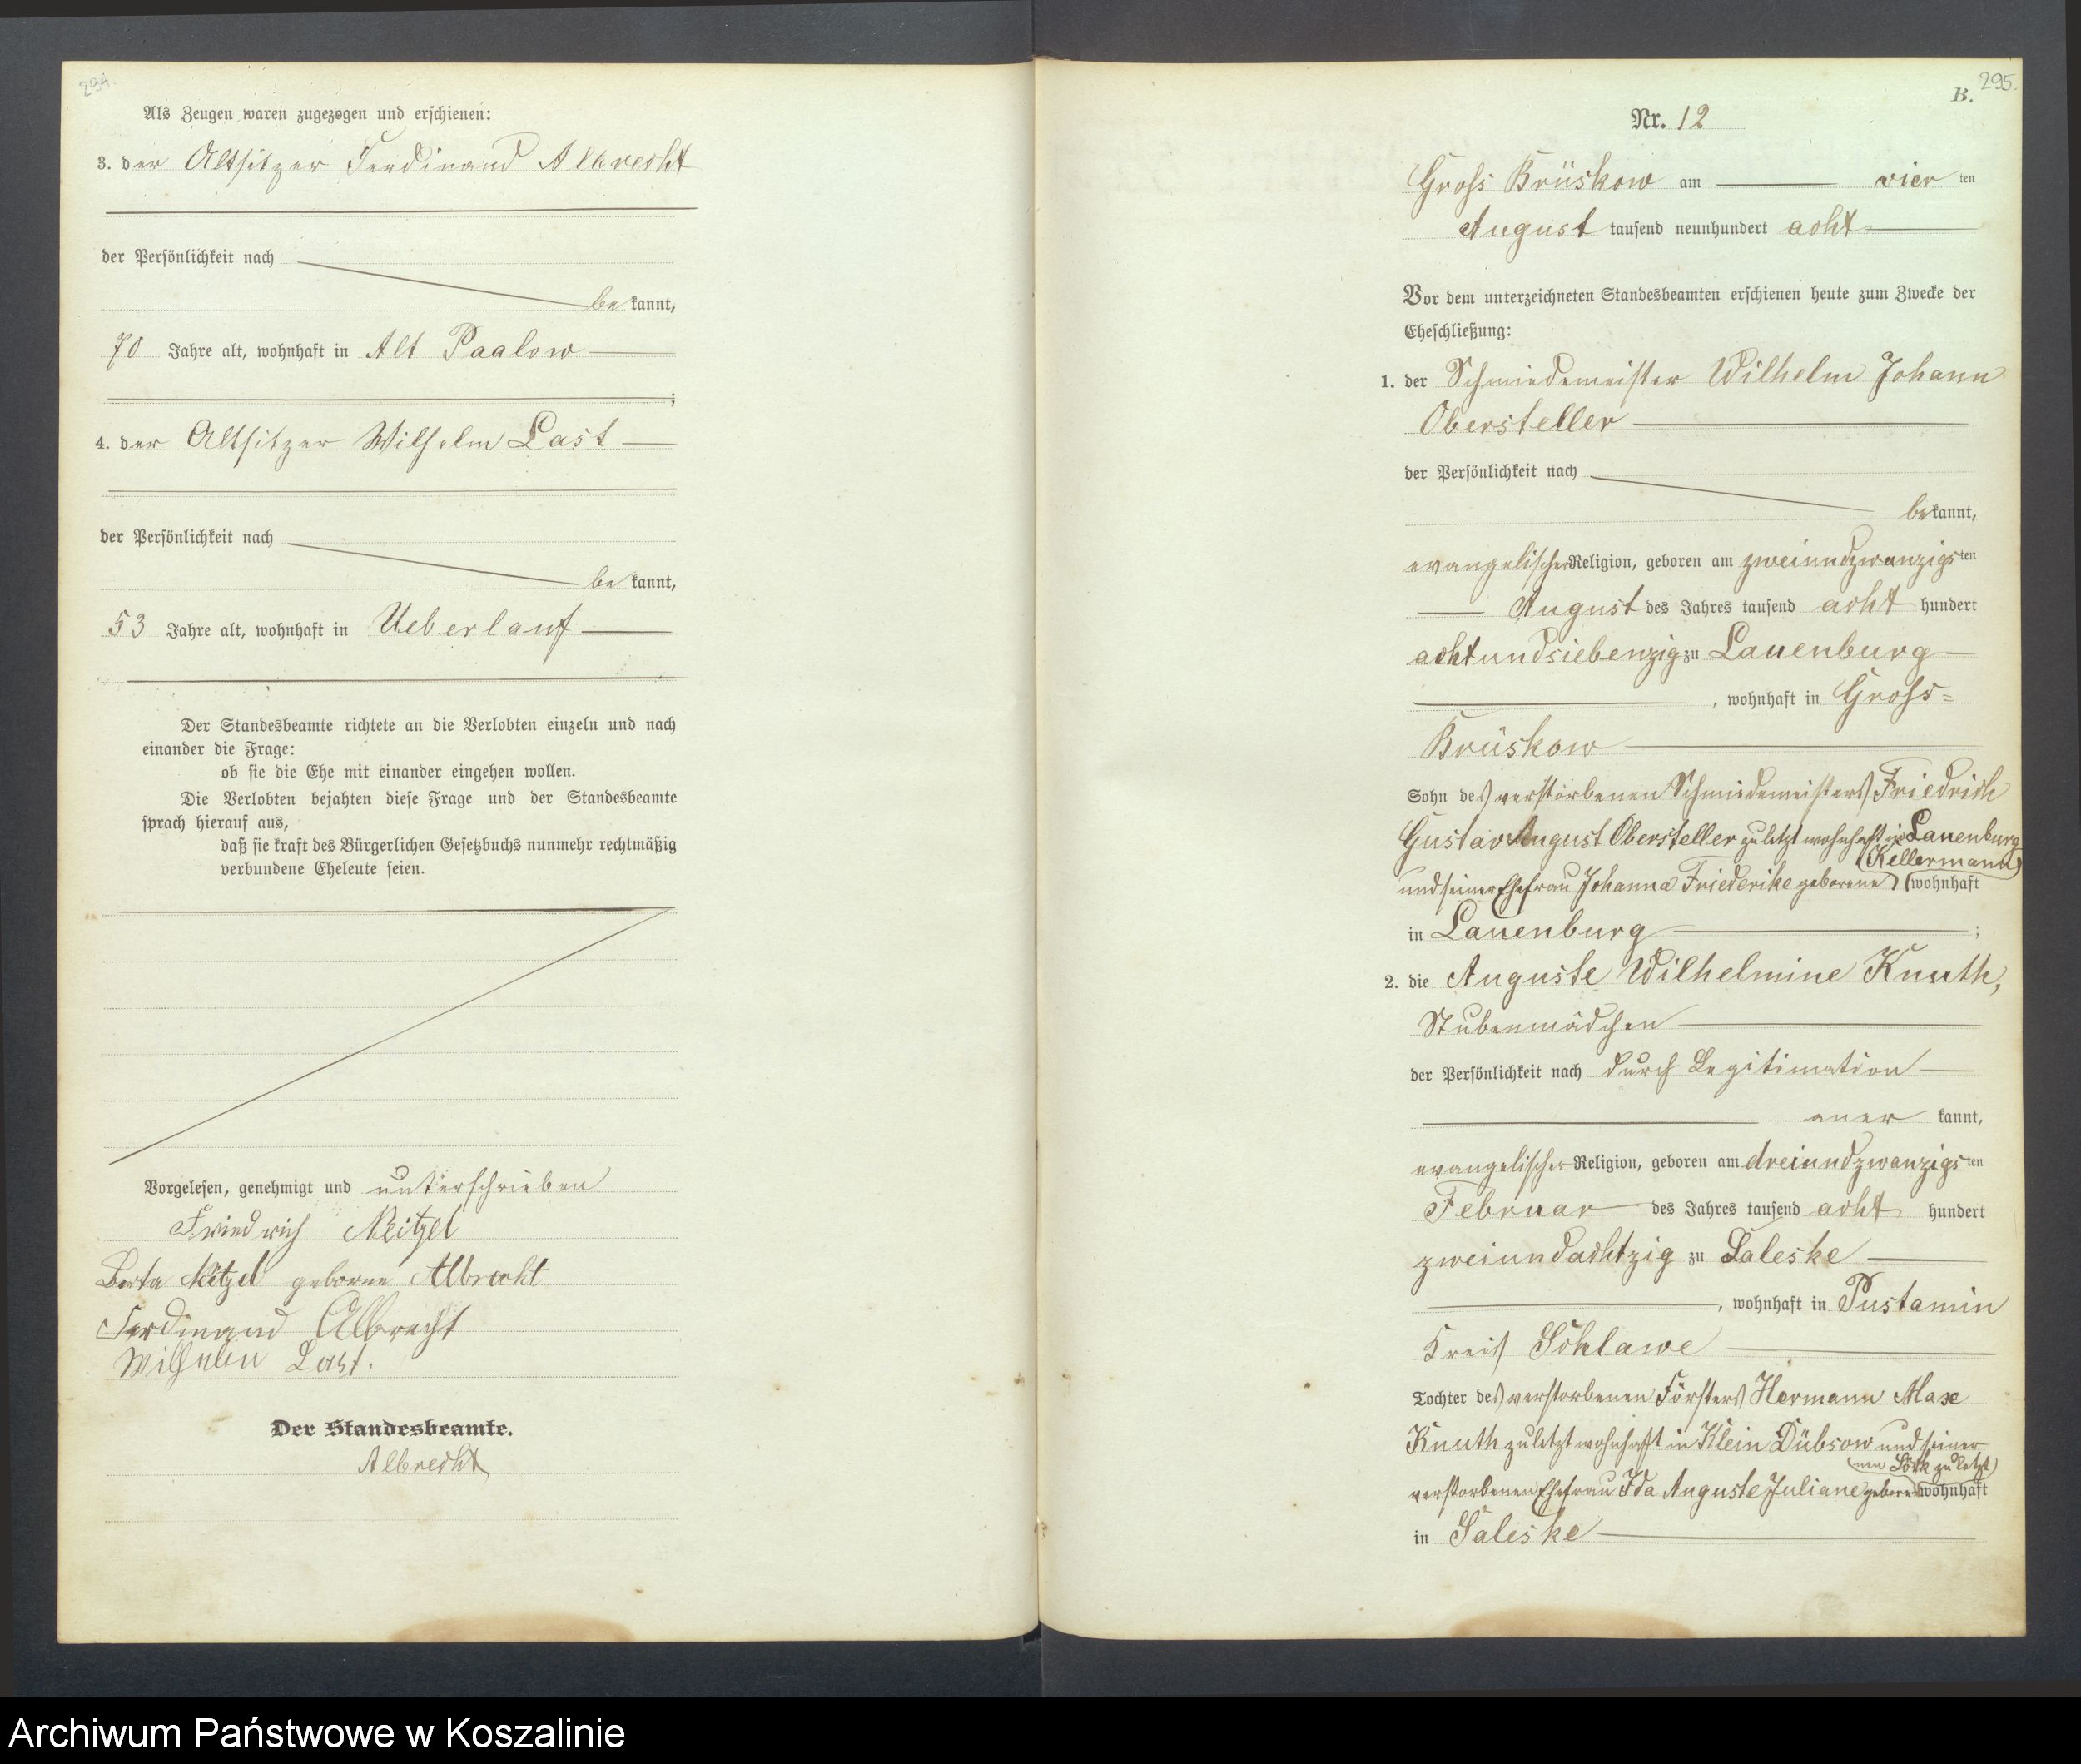 294.
Als Zeugen waren zugezogen und erschienen:
3. der Altsitzer Ferdinand Albrecht
der Persönlichkeit nach
bekannt,
70 Jahre alt, wohnhaft in Alt Paalow
;
4. der Altsitzer Wilhelm Last
der Persönlichkeit nach
bekannt,
53 Jahre alt, wohnhaft in Ueberlauf
Der Standesbeamte richtete an die Verlobten einzeln und nach
einander die Frage:
ob sie die Ehe mit einander eingehen wollen.
Die Verlobten bejahten diese Frage und der Standesbeamte
sprach hierauf aus,
daß sie kraft des Bürgerlichen Gesetzbuchs nunmehr rechtmäßig
verbundene Eheleute seien.
Vorgelesen, genehmigt und unterschrieben
Friedrich Neitzel
Berta Neitzel geborne Albrecht
Ferdinand Albrecht
Wilhelm Last.
Der Standesbeamte.
Albrecht
295.
B.
Nr. 12
Gross Brüskow am vierten
August tausend neunhundert acht
Vor dem unterzeichneten Standesbeamten erschienen heute zum Zwecke der
Eheschließung:
1. der Schmiedemeister Wilhelm Johann
Obersteller
der Persönlichkeit nach
bekannt,
evangelischer Religion, geboren am zweiundzwanzigsten
August des Jahres tausend acht hundert
achtundsiebenzig zu Lauenburg
, wohnhaft in Gross=
Brüskow
Sohn des verstorbenen Schmiedemeisters Friedrich
Gustav August Obersteller zuletzt wohnhaft in Lauenburg
und seiner Ehefrau Johanna Friederike geborene (Kellermann) wohnhaft
in Lauenburg ;
2. die Auguste Wilhelmine Knuth,
Stubenmädchen
der Persönlichkeit nach durch Legitimation
anerkannt,
evangelischer Religion, geboren am dreiundzwanzigsten
Februar des Jahres tausend acht hundert
zweiundachtzig zu Saleske
, wohnhaft in Pustamin
Kreis Schlawe
Tochter des verstorbenen Försters Hermann Max
Knuth zuletzt wohnhaft in Klein Dübsow und seiner
verstorbenen Ehefrau Ida Auguste Juliane gebore(nen zuletzt) wohnhaft
in Saleske
Archiwum Państwowe w Koszalinie